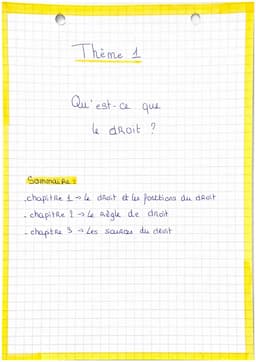 Thème 1
Qu'est-ce que
le droit ?
Sommaire :
- chapitre 1 → le droit et les fonctions du droit
- chapitre 2 → le règle de droit
- chapitre 3 → Les sources du droit